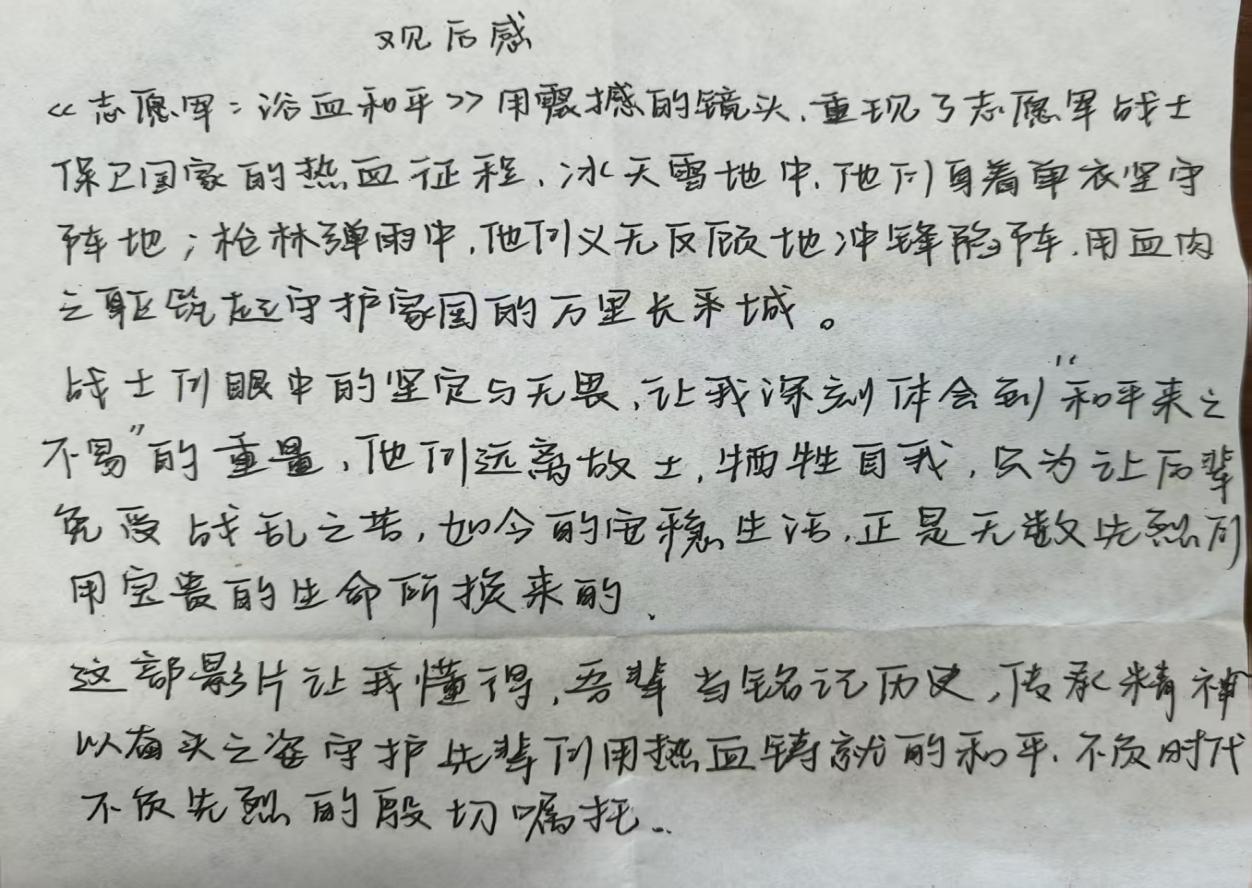 观后感
《志愿军:浴血和平》用震撼的镜头,重现了志愿军战士
保卫国家的热血征程,冰天雪地中,他们身着单衣坚守
阵地;枪林弹雨中,他们义无反顾地冲锋陷阵,用血肉
之躯筑起守护家国的万里长城。
战士们眼中的坚定与无畏,让我深刻体会到“和平来之
不易”的重量,他们远离故土,牺牲自我,只为让后辈
免受战乱之苦,如今的安稳生活,正是无数先烈们
用宝贵的生命所换来的.
这部影片让我懂得,吾辈当铭记历史,传承精神
以奋斗之姿守护先辈们用热血铸就的和平.不负时代
不负先烈的殷切嘱托..